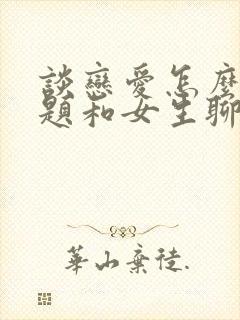 談戀愛怎麼
題和女生聊
華山棄徒.